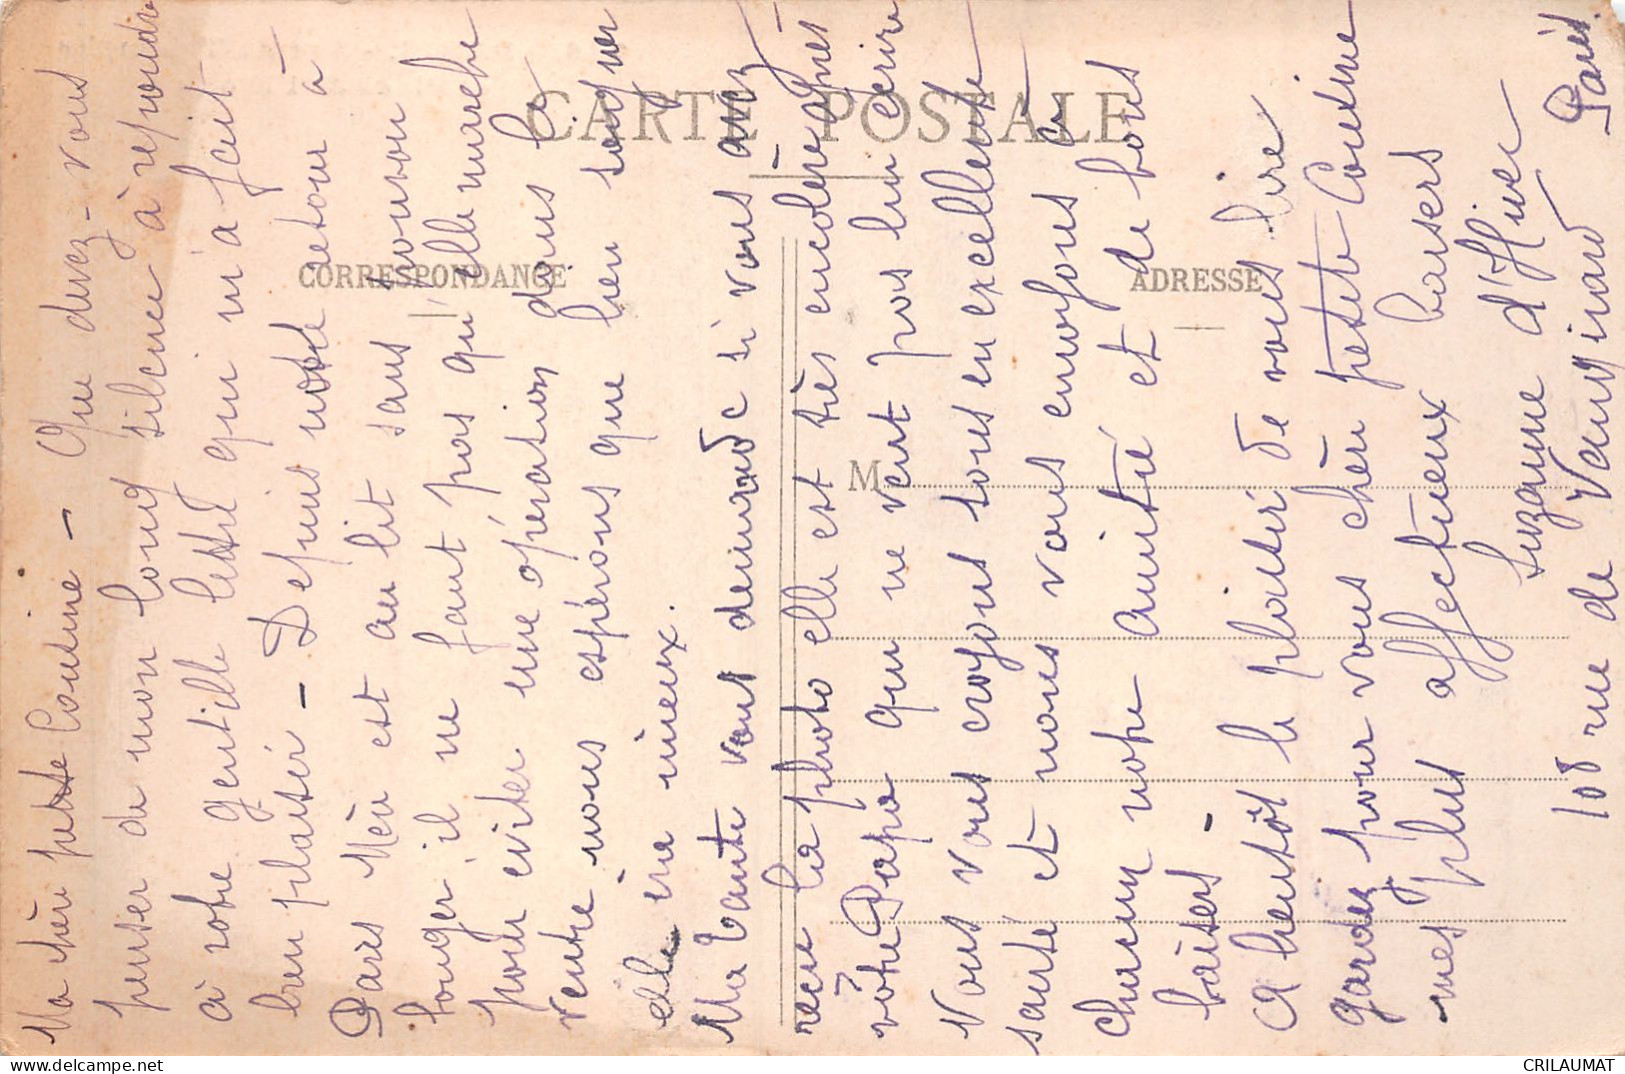 Ma chère petite Cousine - Que devez-vous
penser de mon long silence à répondre
à votre gentille lettre qui m'a fait
bien plaisir - Depuis notre retour à
Paris Mère est au lit sans pouvoir
bouger il ne faut pas qu'elle marche
pour eviter une opération dans le
ventre nous espérons que bien soignée
elle ira mieux.
Ma tante vous demande si vous avez
reçu la photo elle est très en colère après
votre Papa qui ne veut pas lui écrire
Nous vous croyons tous en excellente
santé et nous vous envoyons à
chacun notre amitié et de bons
baisers -
A bientôt le plaisir de vous lire
gardez pour vous chère petite Cousine
mes plus affectueux baisers
Suzanne
108 rue de Vaugirard Paris
CARTE POSTALE
CORRESPONDANCE
ADRESSE
M
CRILAUMAT